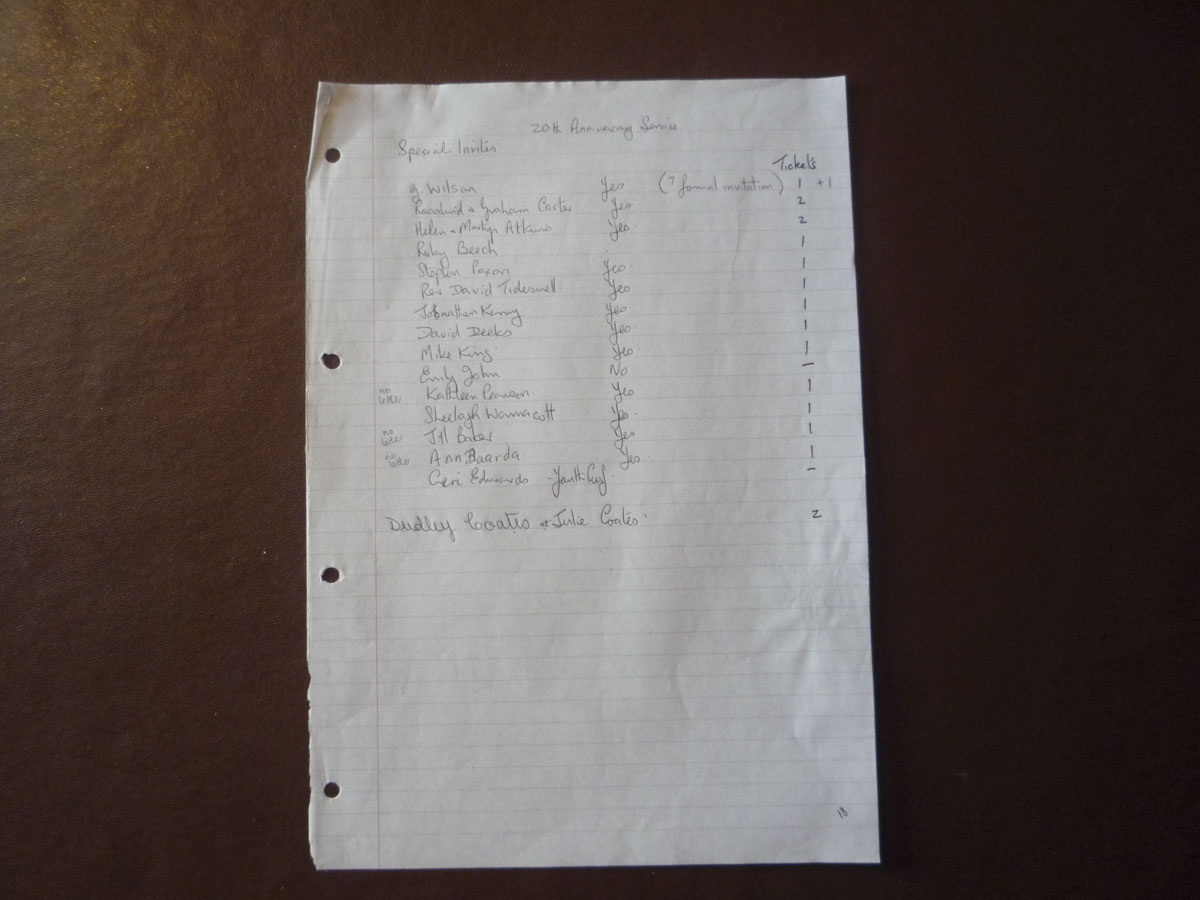 20th Anniversary Service
Special Invites
Tickets
G Wilson Yes (? formal invitation) 1 +1
Rosalind & Graham Carter Yes 2
Helen & Martyn Atkins Yes 2
Ruby Beech 1
Stephen Poxon Yes 1
Rev David Tideswell. Yes 1
Johnathan Kerry Yes 1
David Deeks Yes 1
Mike King Yes 1
Emily John No –
no letter Kathleen Pearson Yes 1
Sheelagh Wannacott Yes 1
no letter Jill Baker Yes 1
no letter Ann Baarda Yes 1
Ceri Edwards - Youth –
Dudley Coates & Julie Coates. 2
18